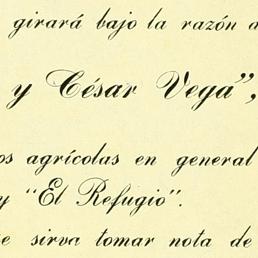 girará bajo la razón
y César Vega",
os agrícolas en general
y "El Refugio".
e sirva tomar nota de